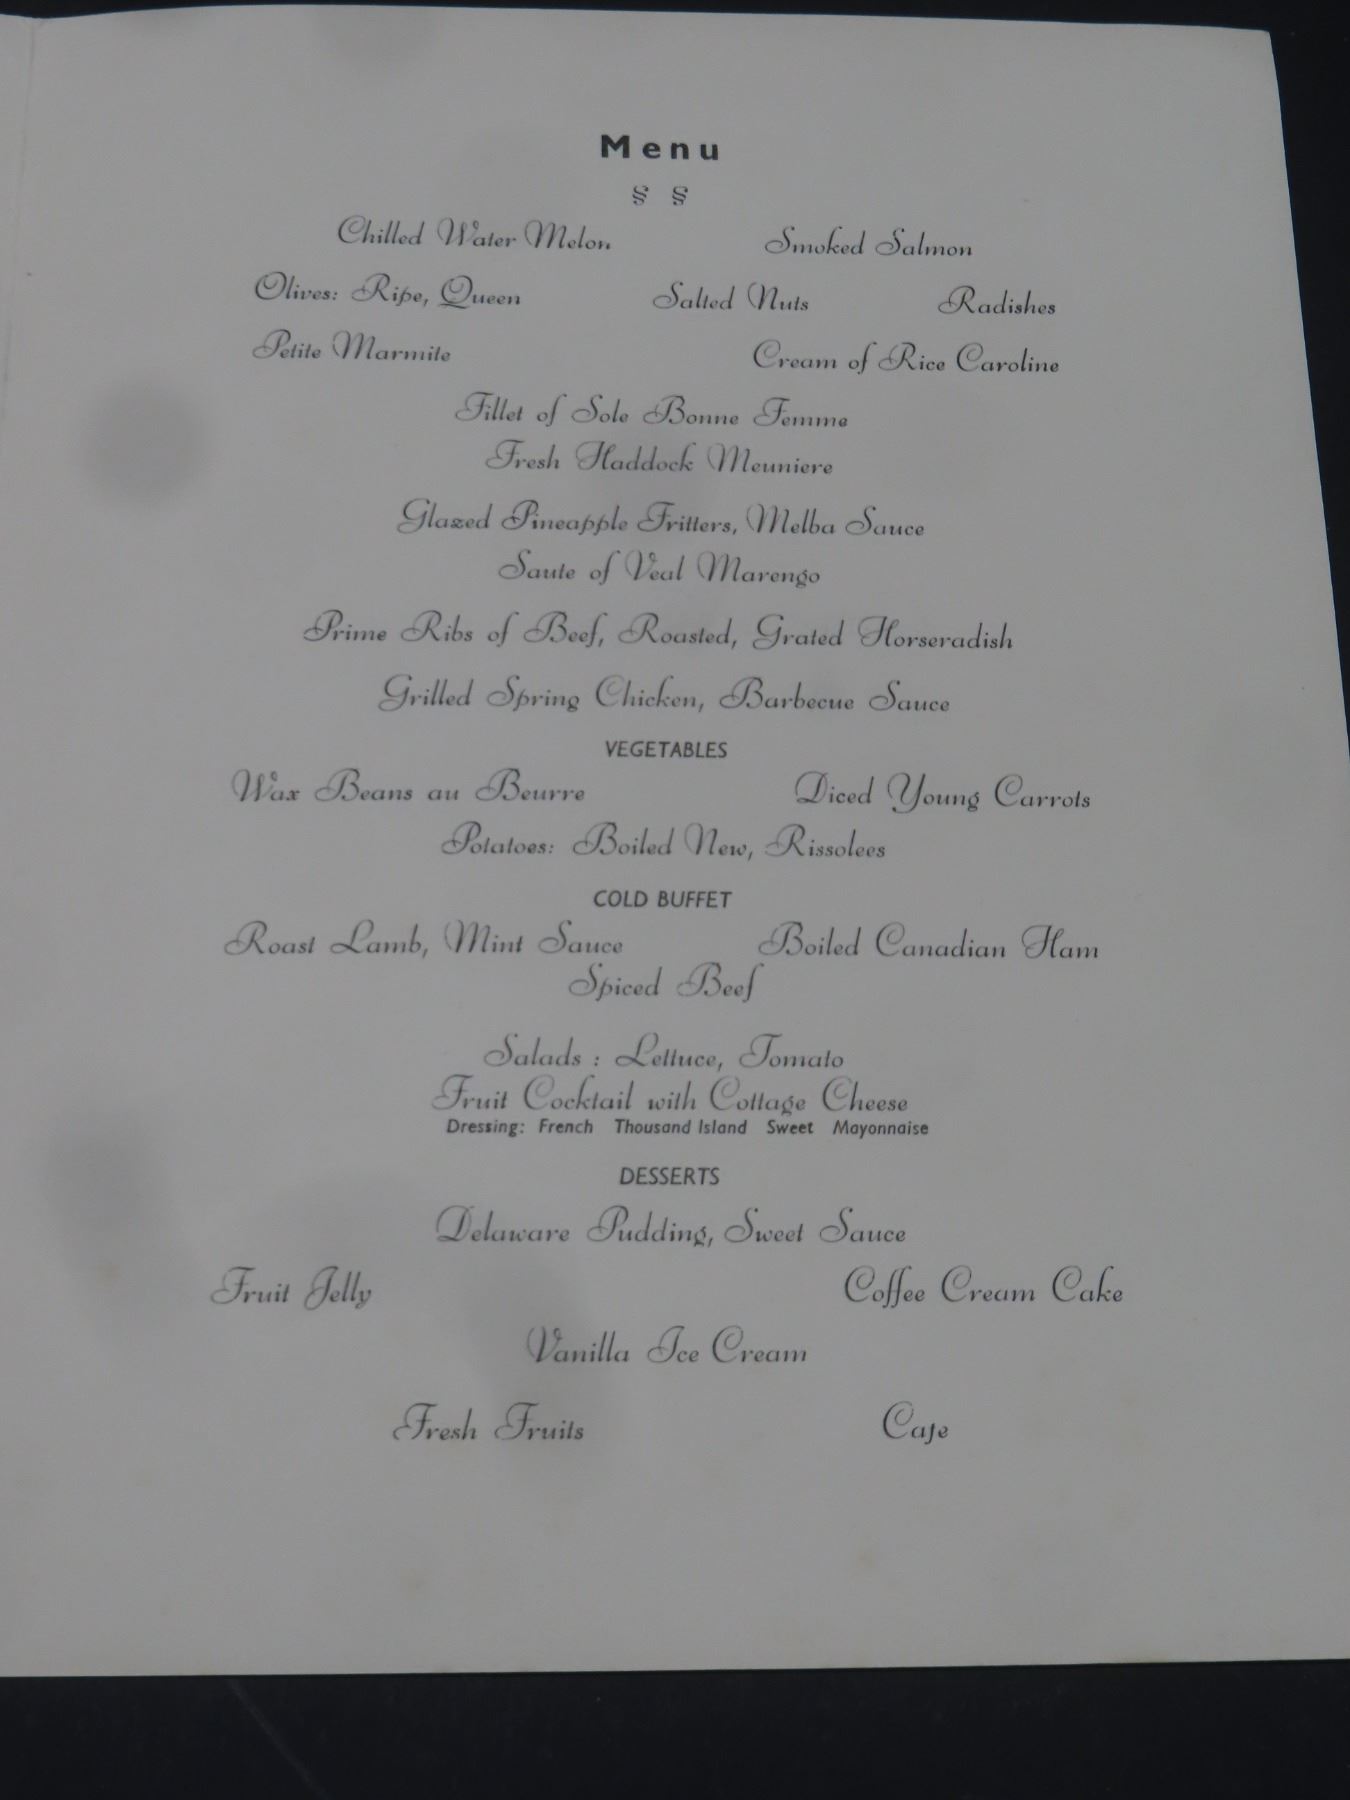 Menu
§ §
Chilled Water Melon Smoked Salmon
Olives: Ripe, Queen Salted Nuts Radishes
Petite Marmite Cream of Rice Caroline
Fillet of Sole Bonne Femme
Fresh Haddock Meuniere
Glazed Pineapple Fritters, Melba Sauce
Saute of Veal Marengo
Prime Ribs of Beef, Roasted, Grated Horseradish
Grilled Spring Chicken, Barbecue Sauce
VEGETABLES
Wax Beans au Beurre Diced Young Carrots
Potatoes: Boiled New, Rissolees
COLD BUFFET
Roast Lamb, Mint Sauce Boiled Canadian Ham
Spiced Beef
Salads : Lettuce, Tomato
Fruit Cocktail with Cottage Cheese
Dressing: French Thousand Island Sweet Mayonnaise
DESSERTS
Delaware Pudding, Sweet Sauce
Fruit Jelly Coffee Cream Cake
Vanilla Ice Cream
Fresh Fruits Cafe